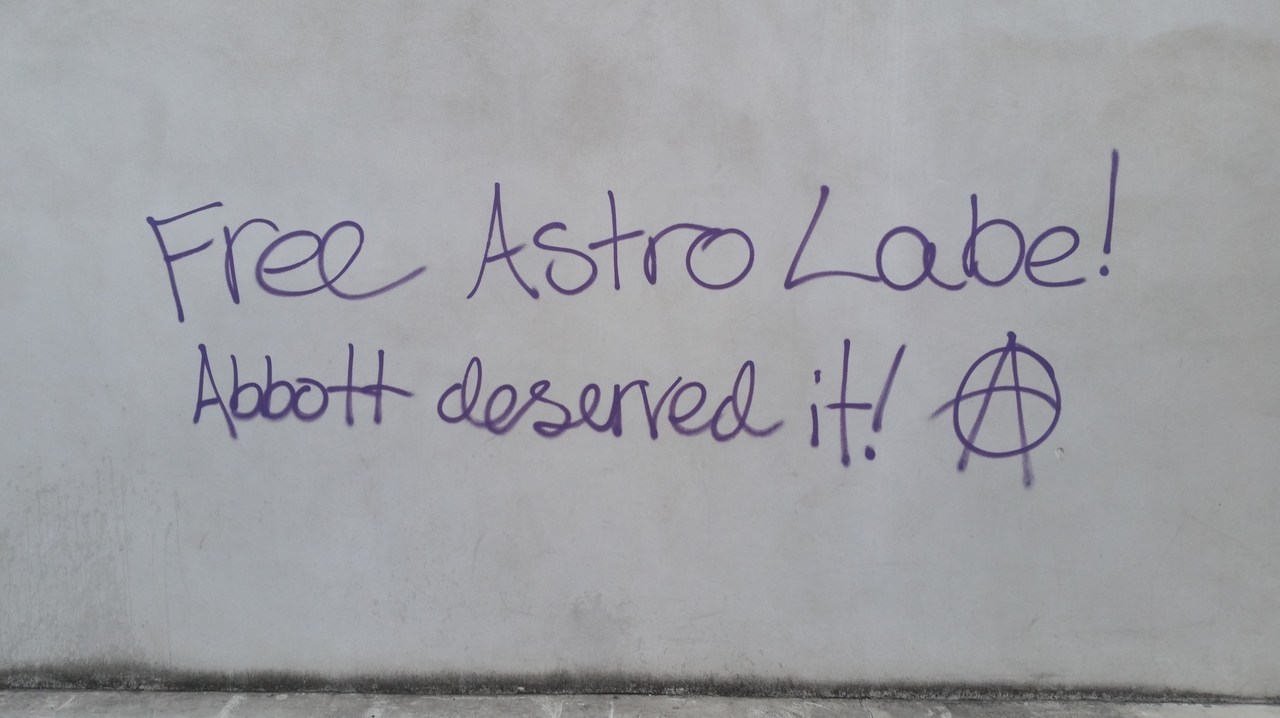 Free Astro Labe!
Abbott deserved it! Ⓐ